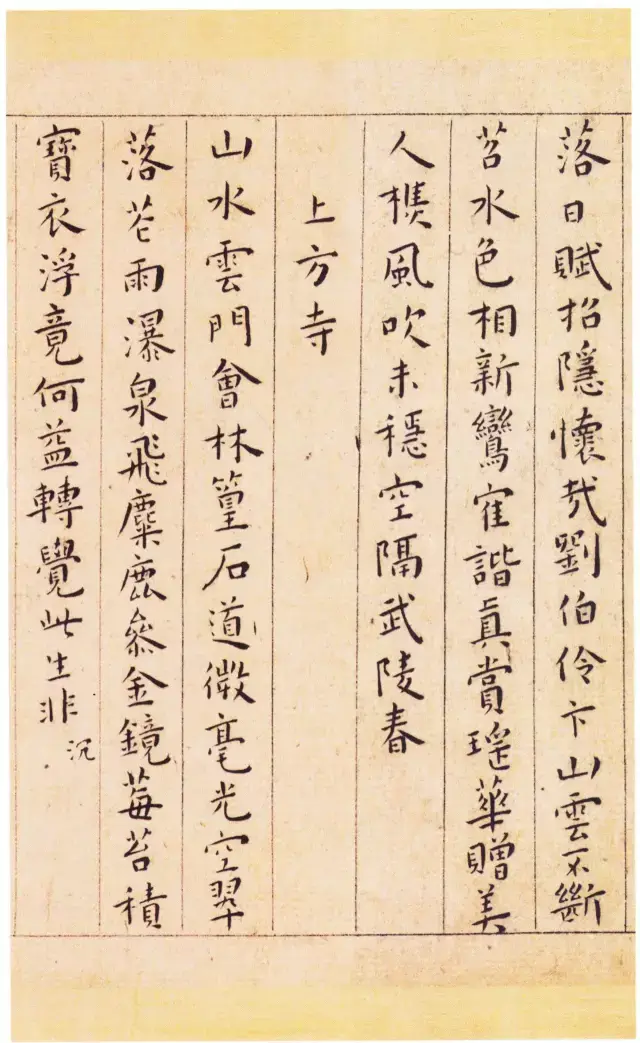 落日賦招隱懷哉劉伯伶卞山雲不斷
苕水色相新鸞寉諧真賞瑤華贈美
人檥風吹未穩空隔武陵春
上方寺
山水雲門會林篁石道微毫光空翠
落花雨瀑泉飛麋鹿參金鏡莓苔積
寶衣浮竟何益轉覺此生非
沉